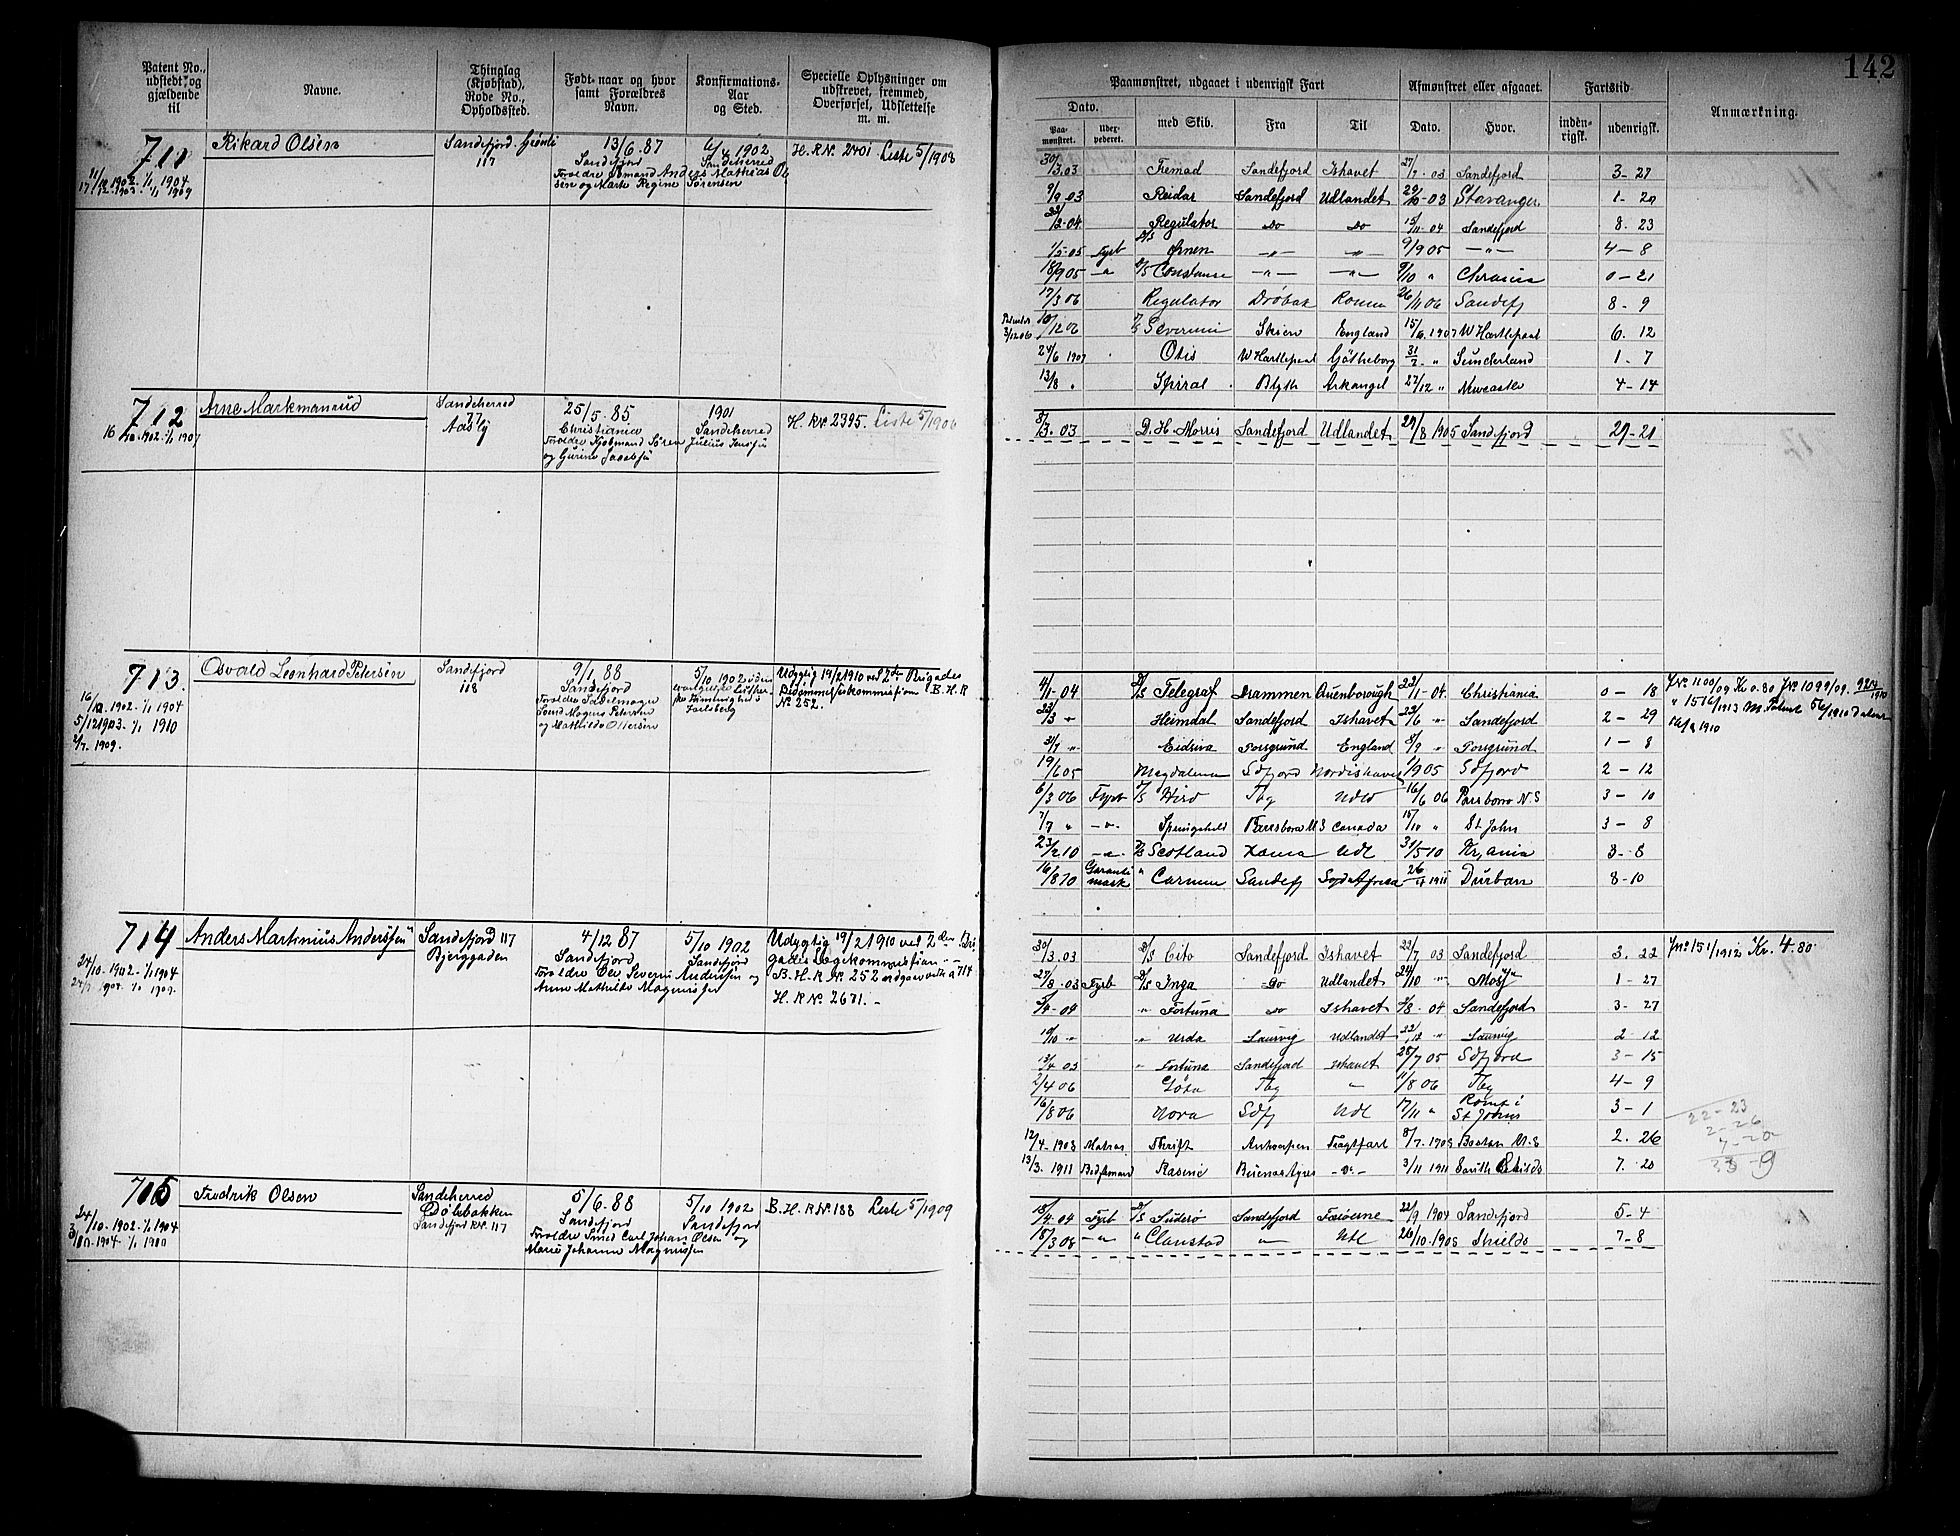 142
Patent No., udstedt og gjældende til
Navne.
Thinglag (Kjøbstad), Rode No., Opholdssted.
Født naar og hvor samt Forældres Navn.
Konfirmations-Aar og Sted.
Specielle Oplysninger om udskrevet, fremmed, Overførsel, Udslettelse m. m.
Paamønstret, udgaaet i udenrigsk Fart
Afmønstret eller afgaaet.
Fartstid.
Anmærkning.
Dato.
Paa-mønstret.
Udex-pederet.
med Skib.
Fra
Til
Dato.
Hvor.
inden-rigsk.
udenrigsk.
711
Rikard Olsen
Sandefjord
117
13/6. 87
Sandefjord
Anders Mathias Ol
sen og Maren Regine Sørensen
1902
Sandeherred
H. R Nº. 2401 Liste 5/1908
1/1 1904
1/1 1909
30/3.03 Fremad Sandefjord Ishavet 27/7. 03 Sandefjord 3-27
9/9.03 Reidar Sandefjord Udlandet 29/10-03 Stavanger 1-20
Regulator Do Do 15/11-04 Sandefjord 8.23
1/5-05 Fyrb D/S Ørnen -"- -"- 9/9 05 -"- 4-8
18/9 05 -"- D/S Constanse -"- -"- 9/10 " 0-21
17/3 06 Regulator Drøbak Rouen 26/11 06 Sandefj 8-9
10/12 06 Severini Skien England 15/6.1907 W Hartlepool 6.12
24/6 1907 Otis W Hartlepool Gøtheborg 31/7 " Sunderland 1-7
13/8 " Spiral Blyth Arkangel 27/12 " Newcastle 4-14
712
Arne Markmanrud
Sandeherred
77
Aasly
25/5. 85
Christiania
Kjøbmand Søren Julius Jensen
og Gurine
1901
Sandeherred
H. R Nº. 2395. Liste 5/1906
16/10.1902. 1/1 1907
8/3. 03 D. H. Morris Sandefjord Udlandet 29/8 1905 Sandefjord 29-21
713.
Osvald Leonhard Petersen
Sandefjord
118
9/1 88
Sandefjord
Forældre Sadelmager
Magnus Petersen
og Mathilde Ottersen
5/10 1902
Jarlsberg
Udygtig 19/2 1910 ved 2den Brigades
Bedømmelseskommission B. H. R
Nº 252.
16/10.1902. 1/1 1904
5/12 1903. 1/1 1910
2/7. 1909.
4/1-04 D/S Telegraf Drammen Queenborough 22/1-04. Christiania 0-18
22/3 " Heimdal Sandefjord Ishavet 22/6 " Sandefjord 2-29
Porsgrund England 8/9 " Porsgrund 1-8
19/6 05 Magdalena Sdfjord Nordishavet 1/9 05 Sdfjord 2-12
6/3 06 Fyrb Hird Tbg Udld 16/6 06 Parrsboro N.S 3-10
7/7 " -"- Springhill Canada 15/10 " St John 3-8
23/2 10 -"- Scotland Udl 31/5 10 Kr,ania 3-8
16/8 10 Garanti mask " Carmen Sandefj 26/4 1911 Durban 8-10
1516/1913 M. Patent
714
Anders Martinius Anderssen
Sandefjord 117
Bjerggaden
4/12 87
Sandefjord
Forældre Ole Severin Anderssen og
Anne Mathilde Magnussen
5/10 1902
Sandefjord
Udygtig 19/2 1910 ved 2den Bri
gades Lægekommission
B. H. R Nº 252
H. R Nº. 2671.
24/10-1902-1/1 1904
1/1 1909.
30/3.03 D/S Cito Sandefjord Ishavet 23/7 03 Sandefjord 3.22
27/8.03 Fyrb D/S Inga Do Udlandet 24/10 " Moss 1-27
5/4-04 " Fortuna Do Ishavet 3/8. 04 Sandefjord 3-27
19/10 " " Urda Laurvig Udlandet 22/12 " Laurvig 2-12
13/4 05 " Fortuna Sandefjord Ishavet 25/7 05 Sdfjord 3-15
2/4 06 Tbg " 11/8 06 Tbg 4-9
16/8 06 Nora Sdfj Udl 17/11 " St Johns 3-1
12/4-1908 Matros Thrift Antwerpen Fragtfart 8/7.1908 2.26
13/3. 1911 Buenos Ayres 3/11 1911 South Shields 7.20
1/1912 Kr. 4.80
22-23
2-26
7-20
33 9
715
Fredrik Olsen
Sandeherred
Sandefjord R Nº. 117
5/6. 88
Sandefjord
Forældre Smed Carl Johan Olsen og
Marie Johanne Magnussen
5/10 1902
Sandefjord
B. H. R Nº 188 Liste 5/1909
24/10-1902-1/1 1904
18/4-04 Fyrb D/S Suderø Sandefjord Færøerne 22/9 1904 Sandefjord 5-4
18/3 08 -"- " Clanstad " Udl 26/10.1908 Shields 7-8